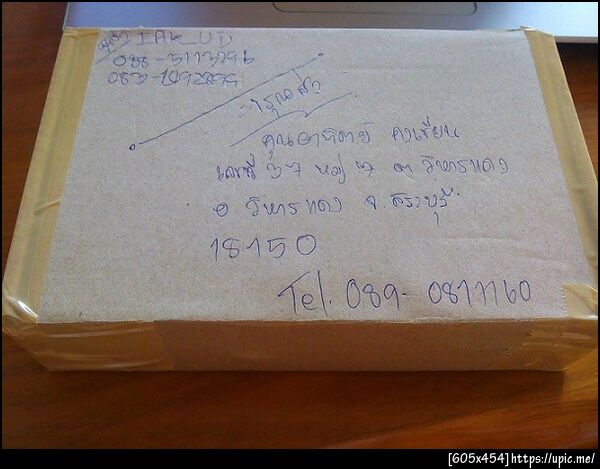 ผู้ส่ง IAK_UD
083-1092899
กรุณาส่ง
คุณอาทิตย์
เลขที่ ๖๖ หมู่ ๒ ต วิหารแดง
อ วิหารแดง จ สระบุรี
18150
Tel. 089-0811160
[605x454]https://upic.me/